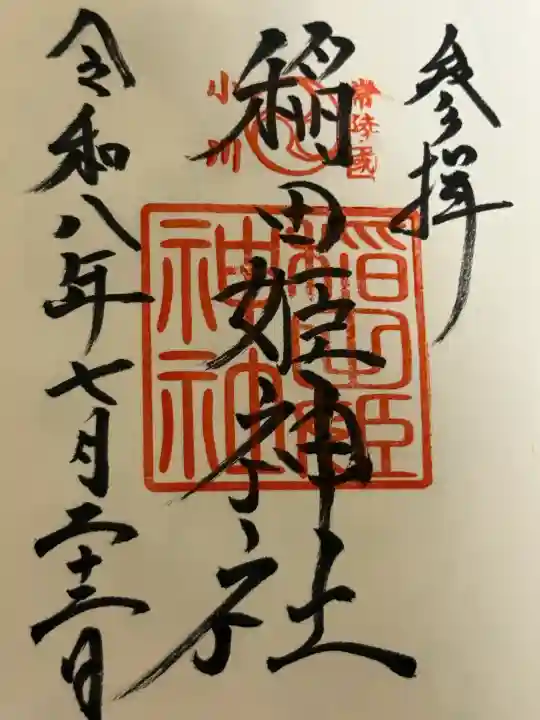 参拝
常陸國
小川
稲田姫神社
稲田姫
神社
令和八年七月二十三日